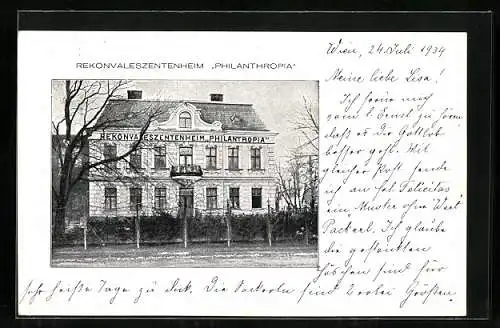 REKONVALESZENTENHEIM „PHILANTHROPIA"
„REKONVALESZENTENHEIM PHILANTHROPIA"
Wien, 24. Juli 1934
Meine liebe Lisa!
Ich freue mich
vom l. Ernst zu hören
daß es Dir Gottlob
besser geht. Mit
gleicher Post sende
ich an Felicitas
ein Muster ohne Wert
Packerl. Ich glaube
die gestrickten
sind für
sehr heiße Tage zu dick. Die Sockerln sind 2 erlei Größen.